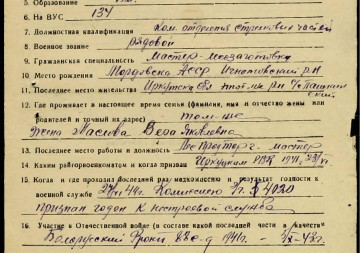 5. Образование
6. На ВУС 134
7. Должностная квалификация Ком. отделения стрелковых частей
8. Военное звание рядовой
9. Гражданская специальность Мастер-мясозаготовки
10. Место рождения Мордовская АССР р-н
11. Последнее место жительства Иркутская обл
12. Где проживает в настоящее время семья (фамилия, имя и отчество жены или
родителей и точный адрес) там-же
Жена Маслова Вера Яковлевна
13. Последнее место работы и должность мастер
14. Каким райгорвоенкоматом и когда призван Иркутским РВК 1941
15. Когда и где проходил последний раз медкомиссию и результат годности к
военной службе 44г. Комиссиею Эг. 4020
Признан годен к нестроевой службы
16. Участие в Отечественной войне (в составе какой последней части и в качестве
Белорусский Фронт 82 с-д 1941г -